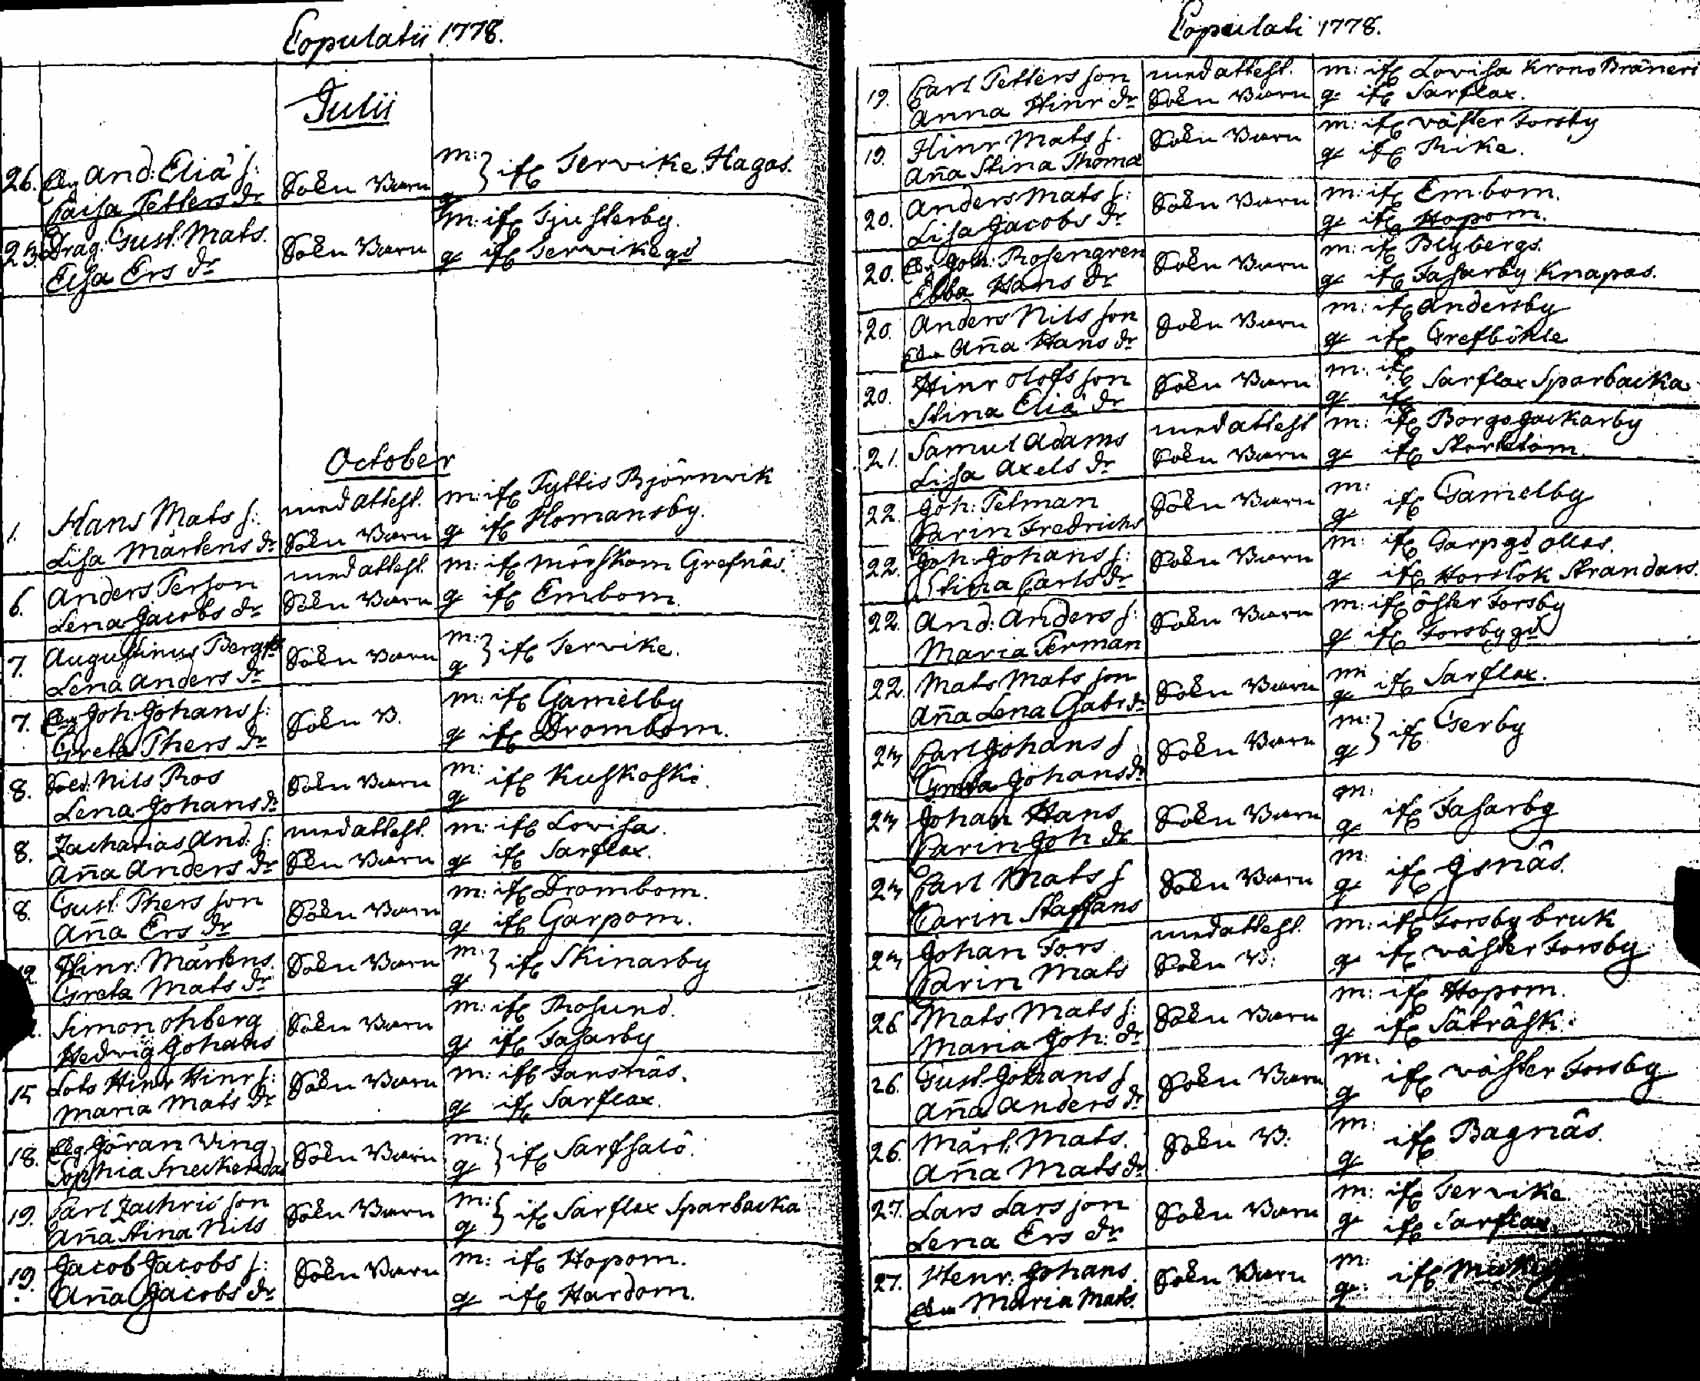 Copulatii 1778.
Julii
26. And: Eliæ s:
Caisa Petters dr
Sokn Barn
m: } ifr Tervike Hagas.
q
23. Drag: Gust: Mats.
Elsa Ers dr
Sokn Barn
m: ifr Tjusterby.
q ifr Tervike gd
October
1. Hans Mats s:
Lisa Mårtens dr
med attest.
Sokn Barn
m: ifr Pyttis Björnvik
q ifr Homansby.
6. Anders Person
Lena Jacobs dr
med attest.
Sokn Barn
m: ifr Mörskom Grefnäs.
q ifr Embom.
7. Augustinus Berg
Lena Anders dr
Sokn Barn
m: } ifr Tervike.
q
7. Joh: Johans s:
Greta Thers dr
Sokn B.
m: ifr Gamelby
q ifr Drombom.
8. Sold. Nils Ros
Lena Johans dr
Sokn Barn
m: ifr Kuskoski.
q
8. Zacharias And. s:
Aña Anders dr
med attest.
Sokn Barn
m: ifr Lovisa.
q ifr Sarflax.
8. Gust: Thers son
Aña Ers dr
Sokn Barn
m: ifr Drombom.
q ifr Garpom.
12 Hinr: Mårtens.
Greta Mats dr
Sokn Barn
m: } ifr Skinarby
q
Simon ohberg
Hedvig Johans
Sokn Barn
m: ifr Rosund.
q ifr Fasarby
15 Lots Hinr Hinr s:
Maria Mats dr
Sokn Barn
m: ifr Jansnäs.
q ifr Sarflax.
18. Göran Ving
Sophia
Sokn Barn
m: } ifr Sarfsalö.
q
19. Carl Zachris son
Aña Stina Nils
Sokn Barn
m: } ifr Sarflax Sparbacka
q
19. Jacob Jacobs s:
Aña Jacobs dr
Sokn Barn
m: ifr Hopom.
q ifr Hardom.
Copulati 1778.
19. Carl Petters son
Anna Hinr dr
med attest.
Sokn Barn
m: ifr Lovisa Krono Bräneri
q ifr Sarflax.
19. Hinr Mats s.
Aña Stina Thomæ
Sokn Barn
m: ifr väster Forsby
q ifr Rike.
20. Anders Mats s:
Lisa Jacobs dr
Sokn Barn
m: ifr Embom.
q ifr Hopom.
20. Joh: Rosengren
Ebba Hans dr
Sokn Barn
m: ifr Blybergs.
q ifr Fasarby Knapas.
20 Anders Nils son
Aña Hans dr
Sokn Barn
m: ifr Andersby
q ifr Grefböhle
20. Hinr Olofs son
Stina Eliæ dr
Sokn Barn
m: ifr Sarflax Sparbacka
q ifr
21. Samul Adams
Lisa Axels dr
med attest
Sokn Barn
m: ifr Borgo Jackarby
q ifr
22. Joh: Petman
Carin Fredrichs
Sokn Barn
m: ifr Gamelby
q
22. Joh: Johans s:
Stina Carls dr
Sokn Barn
m: ifr Garpgd ollas.
q ifr Horslök Strandars.
22. And: Anders s:
Maria Perman
Sokn Barn
m: ifr öster Forsby
q ifr Forsby gd
22. Mats Mats son
Aña Lena Gabr dr
Sokn Barn
m ifr Sarflax.
q
23 Carl Johans s
Greta Johans dr
Sokn Barn
m: } ifr Gerby
q
23 Johan Hans
Carin Joh dr
Sokn Barn
m: ifr Fasarby
q
23 Carl Mats s
Carin Staffans
Sokn Barn
m: ifr Isnäs.
q
23 Johan Fors
Carin Mats
med attest.
Sokn B:
m: ifr Forsby bruk
q ifr väster Forsby
26 Mats Mats s:
Maria Joh: dr
Sokn Barn
m: ifr Hopom.
q ifr Säträsk.
26. Gust: Johans s
Aña Anders dr
Sokn Barn
m: ifr väster Forsby
q
26. Mårt: Mats.
Aña Mats dr
Sokn B:
m: ifr Bagnäs.
q
27. Lars Lars son
Lena Ers dr
Sokn Barn
m: ifr Tervike
q ifr Sarflax.
27. Henr. Johans.
Maria Mats.
Sokn Barn
m: ifr
q: